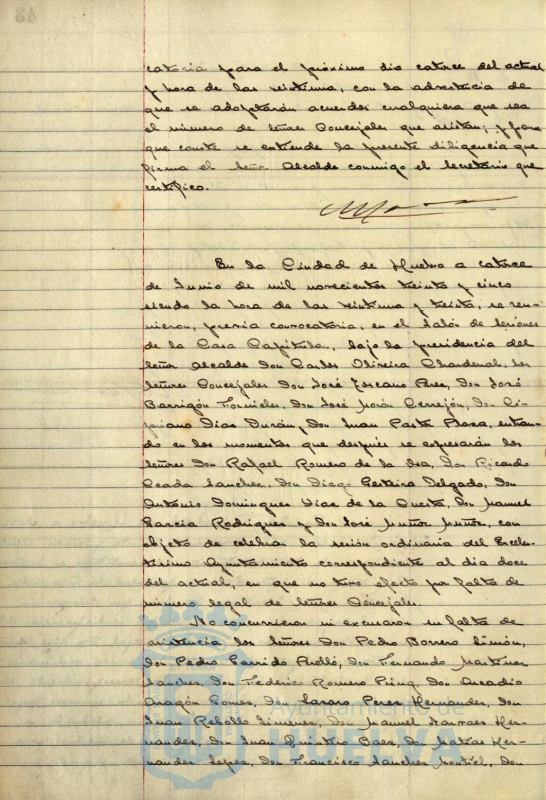 catoria para el próximo dia catorce del actual
y hora de las veintiuna, con la advertencia de
que se adoptarán acuerdos cualquiera que sea
el número de señores Concejales que asistan; y para
que conste se extiende la presente diligencia que
firma el Señor Alcalde conmigo el Secretario que
certifico.
En la Ciudad de Huelva a catorce
de Junio de mil novecientos treinta y cinco
siendo la hora de las veintiuna y treinta, se reu-
nieron, previa convocatoria, en el Salón de Sesiones
de la Casa Capitular, bajo la presidencia del
Señor Alcalde Don Carlos Oliveira Chardenal, los
Señores Concejales Don José Toscano Perez, Don José
Barrigón Fornieles, Don José Morón Cerrejón, Don Ci-
priano Dias Durán, Don Juan Pasta Baza, entran-
do en los momentos que despues se expresarán los
señores Don Rafael Romero de la Osa, Don Ricardo
Ceada Sanchez, Don Diego Delgado, Don
Antonio Dominguez Diaz de la Cuesta, Don Manuel
Garcia Rodriguez y Don José Muñoz Muñoz, con
objeto de celebrar la sesión ordinaria del Excelen-
tisimo Ayuntamiento correspondiente al dia doce
del actual, en que no tuvo efecto por falta de
número legal de Señores Concejales.
No concurrieron ni excusaron su falta de
asistencia los Señores Don Pedro Borrero Limón,
Don Pedro Garrido Don Fernando Martinez
Sanchez, Don Federico Romero Don Arcadio
Aragón Gomez, Don Lazaro Perez Hernandez, Don
Juan Rebollo Jimenez, Don Manuel Narvaes Her-
nandez, Don Juan Quintero Baez, Don Matias Her-
nandez Lopez, Don Francisco Sanchez Montiel, Don
Ayuntamiento de
HUELVA